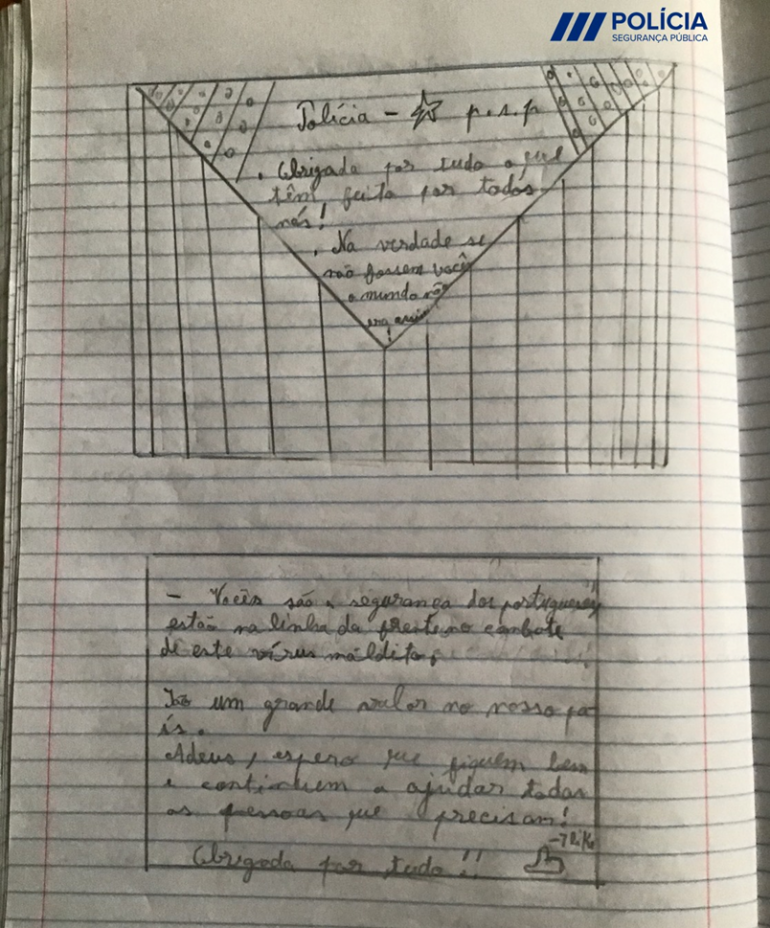 POLÍCIA
SEGURANÇA PÚBLICA
Polícia - p.s.p
. Obrigada por tudo o que
têm feito por todos
nós!
. Na verdade se
não fossem vocês
o mundo não
era assim
!
- Vocês são a segurança dos portugueses,
estão na linha da frente no combate
de este vírus maldito,
um grande valor no nosso pa-
ís.
Adeus, espero que fiquem bem
e continuem a ajudar todas
as pessoas que precisam!
Obrigada por tudo!!